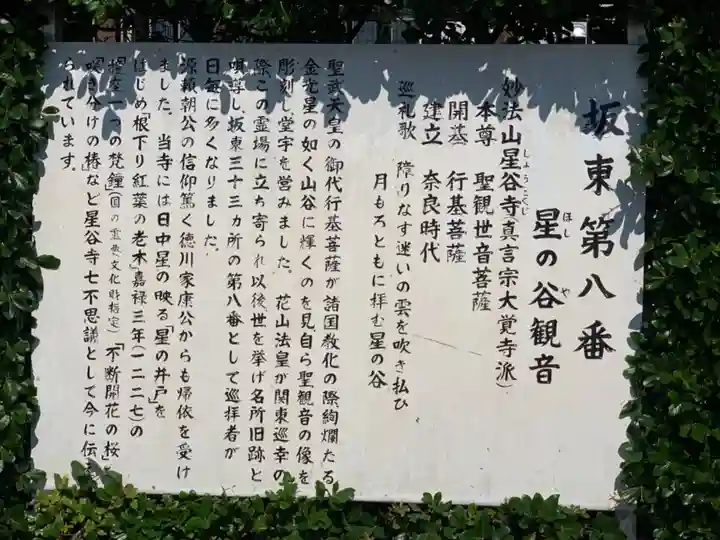 坂東第八番
星の谷観音
ほし や
妙法山星谷寺(真言宗大覚寺派)
しょうこくじ
本尊 聖観世音菩薩
開基 行基菩薩
建立 奈良時代
巡礼歌 障りなす迷いの雲を吹き払ひ
月もろともに拝む星の谷
聖武天皇の御代行基菩薩が諸国教化の際絢爛たる
金光星の如く山谷に輝くのを見自ら聖観音の像を
彫刻し堂宇を営みました。花山法皇が関東巡幸の
際この霊場に立ち寄られ以後世を挙げ名所旧跡と
唄尊し、坂東三十三ヵ所の第八番として巡拝者が
日毎に多くなりました。
源頼朝公の信仰篤く徳川家康公からも帰依を受け
ました。当寺には日中星の映る「星の井戸」を
はじめ「根下り紅葉の老木」嘉禄三年(一二二七)の
「撞座一つの梵鐘(国の重要文化財指定)「不断開花の桜」
「咲き分けの椿」など星谷寺七不思議として今に伝え
られています。